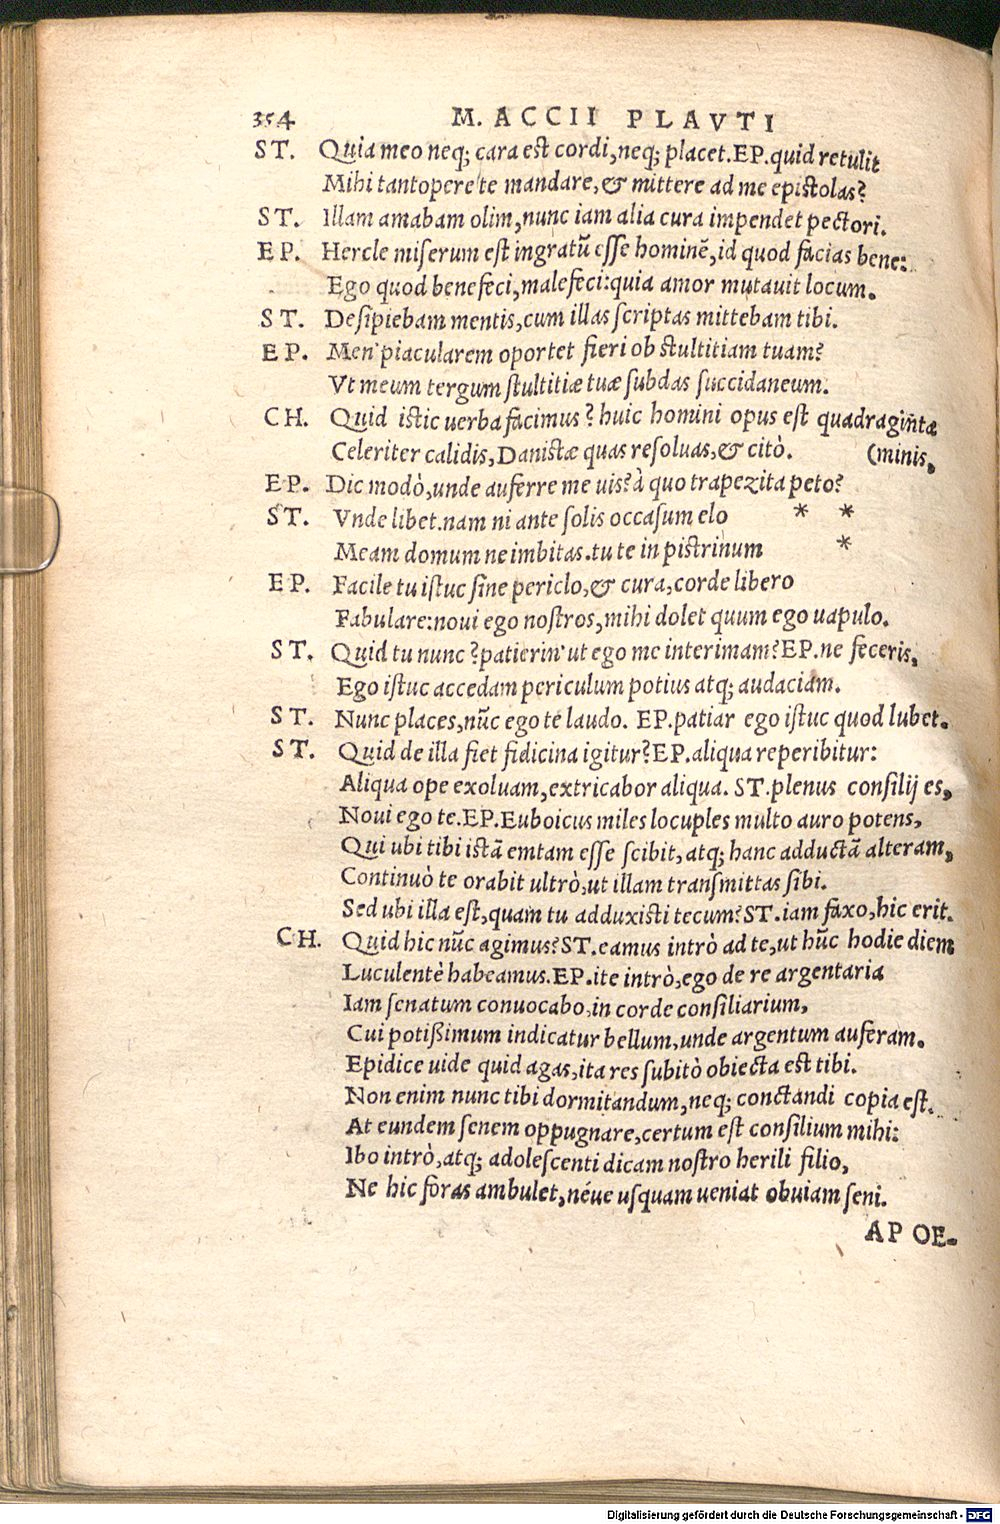 354 M. ACCII PLAVTI
ST. Quia meo neq; cara est cordi, neq; placet. EP. quid retulit
Mihi tantopere te mandare, & mittere ad me epistolas?
ST. Illam amabam olim, nunc iam alia cura impendet pectori.
EP. Hercle miserum est ingratũ esse hominẽ, id quod facias bene:
Ego quod benefeci, malefeci: quia amor mutauit locum.
ST. Desipiebam mentis, cum illas scriptas mittebam tibi.
EP. Men' piacularem oportet fieri ob stultitiam tuam?
Vt meum tergum stultitiæ tuæ subdas succidaneum.
CH. Quid istic uerba facimus? huic homini opus est quadragin̄tæ
Celeriter calidis, Danistæ quas resoluas, & citò. (minis,
EP. Dic modò, unde auferre me uis? à quo trapezita peto?
ST. Vnde libet. nam ni ante solis occasum elo * *
Meam domum ne imbitas. tu te in pistrinum *
EP. Facile tu istuc sine periclo, & cura, corde libero
Fabulare: noui ego nostros, mihi dolet quum ego uapulo.
ST. Quid tu nunc? patierin' ut ego me interimam? EP. ne feceris,
Ego istuc accedam periculum potius atq; audaciam.
ST. Nunc places, nũc ego te laudo. EP. patiar ego istuc quod lubet.
ST. Quid de illa fiet fidicina igitur? EP. aliqua reperibitur:
Aliqua ope exoluam, extricabor aliqua. ST. plenus consilij es,
Noui ego te. EP. Euboicus miles locuples multo auro potens,
Qui ubi tibi istã emtam esse scibit, atq; hanc adductã alteram,
Continuò te orabit ultrò, ut illam transmittas sibi.
Sed ubi illa est, quam tu adduxisti tecum? ST. iam faxo, hic erit.
CH. Quid hic nũc agimus? ST. eamus intrò ad te, ut hũc hodie diem
Luculentè habeamus. EP. ite intrò, ego de re argentaria
Iam senatum conuocabo, in corde consiliarium,
Cui potißimum indicatur bellum, unde argentum auferam.
Epidice uide quid agas, ita res subitò obiecta est tibi.
Non enim nunc tibi dormitandum, neq; conctandi copia est.
At eundem senem oppugnare, certum est consilium mihi:
Ibo intrò, atq; adolescenti dicam nostro herili filio,
Ne hic foras ambulet, néue usquam ueniat obuiam seni.
AP OE-
Digitalisierung gefördert durch die Deutsche Forschungsgemeinschaft - DFG